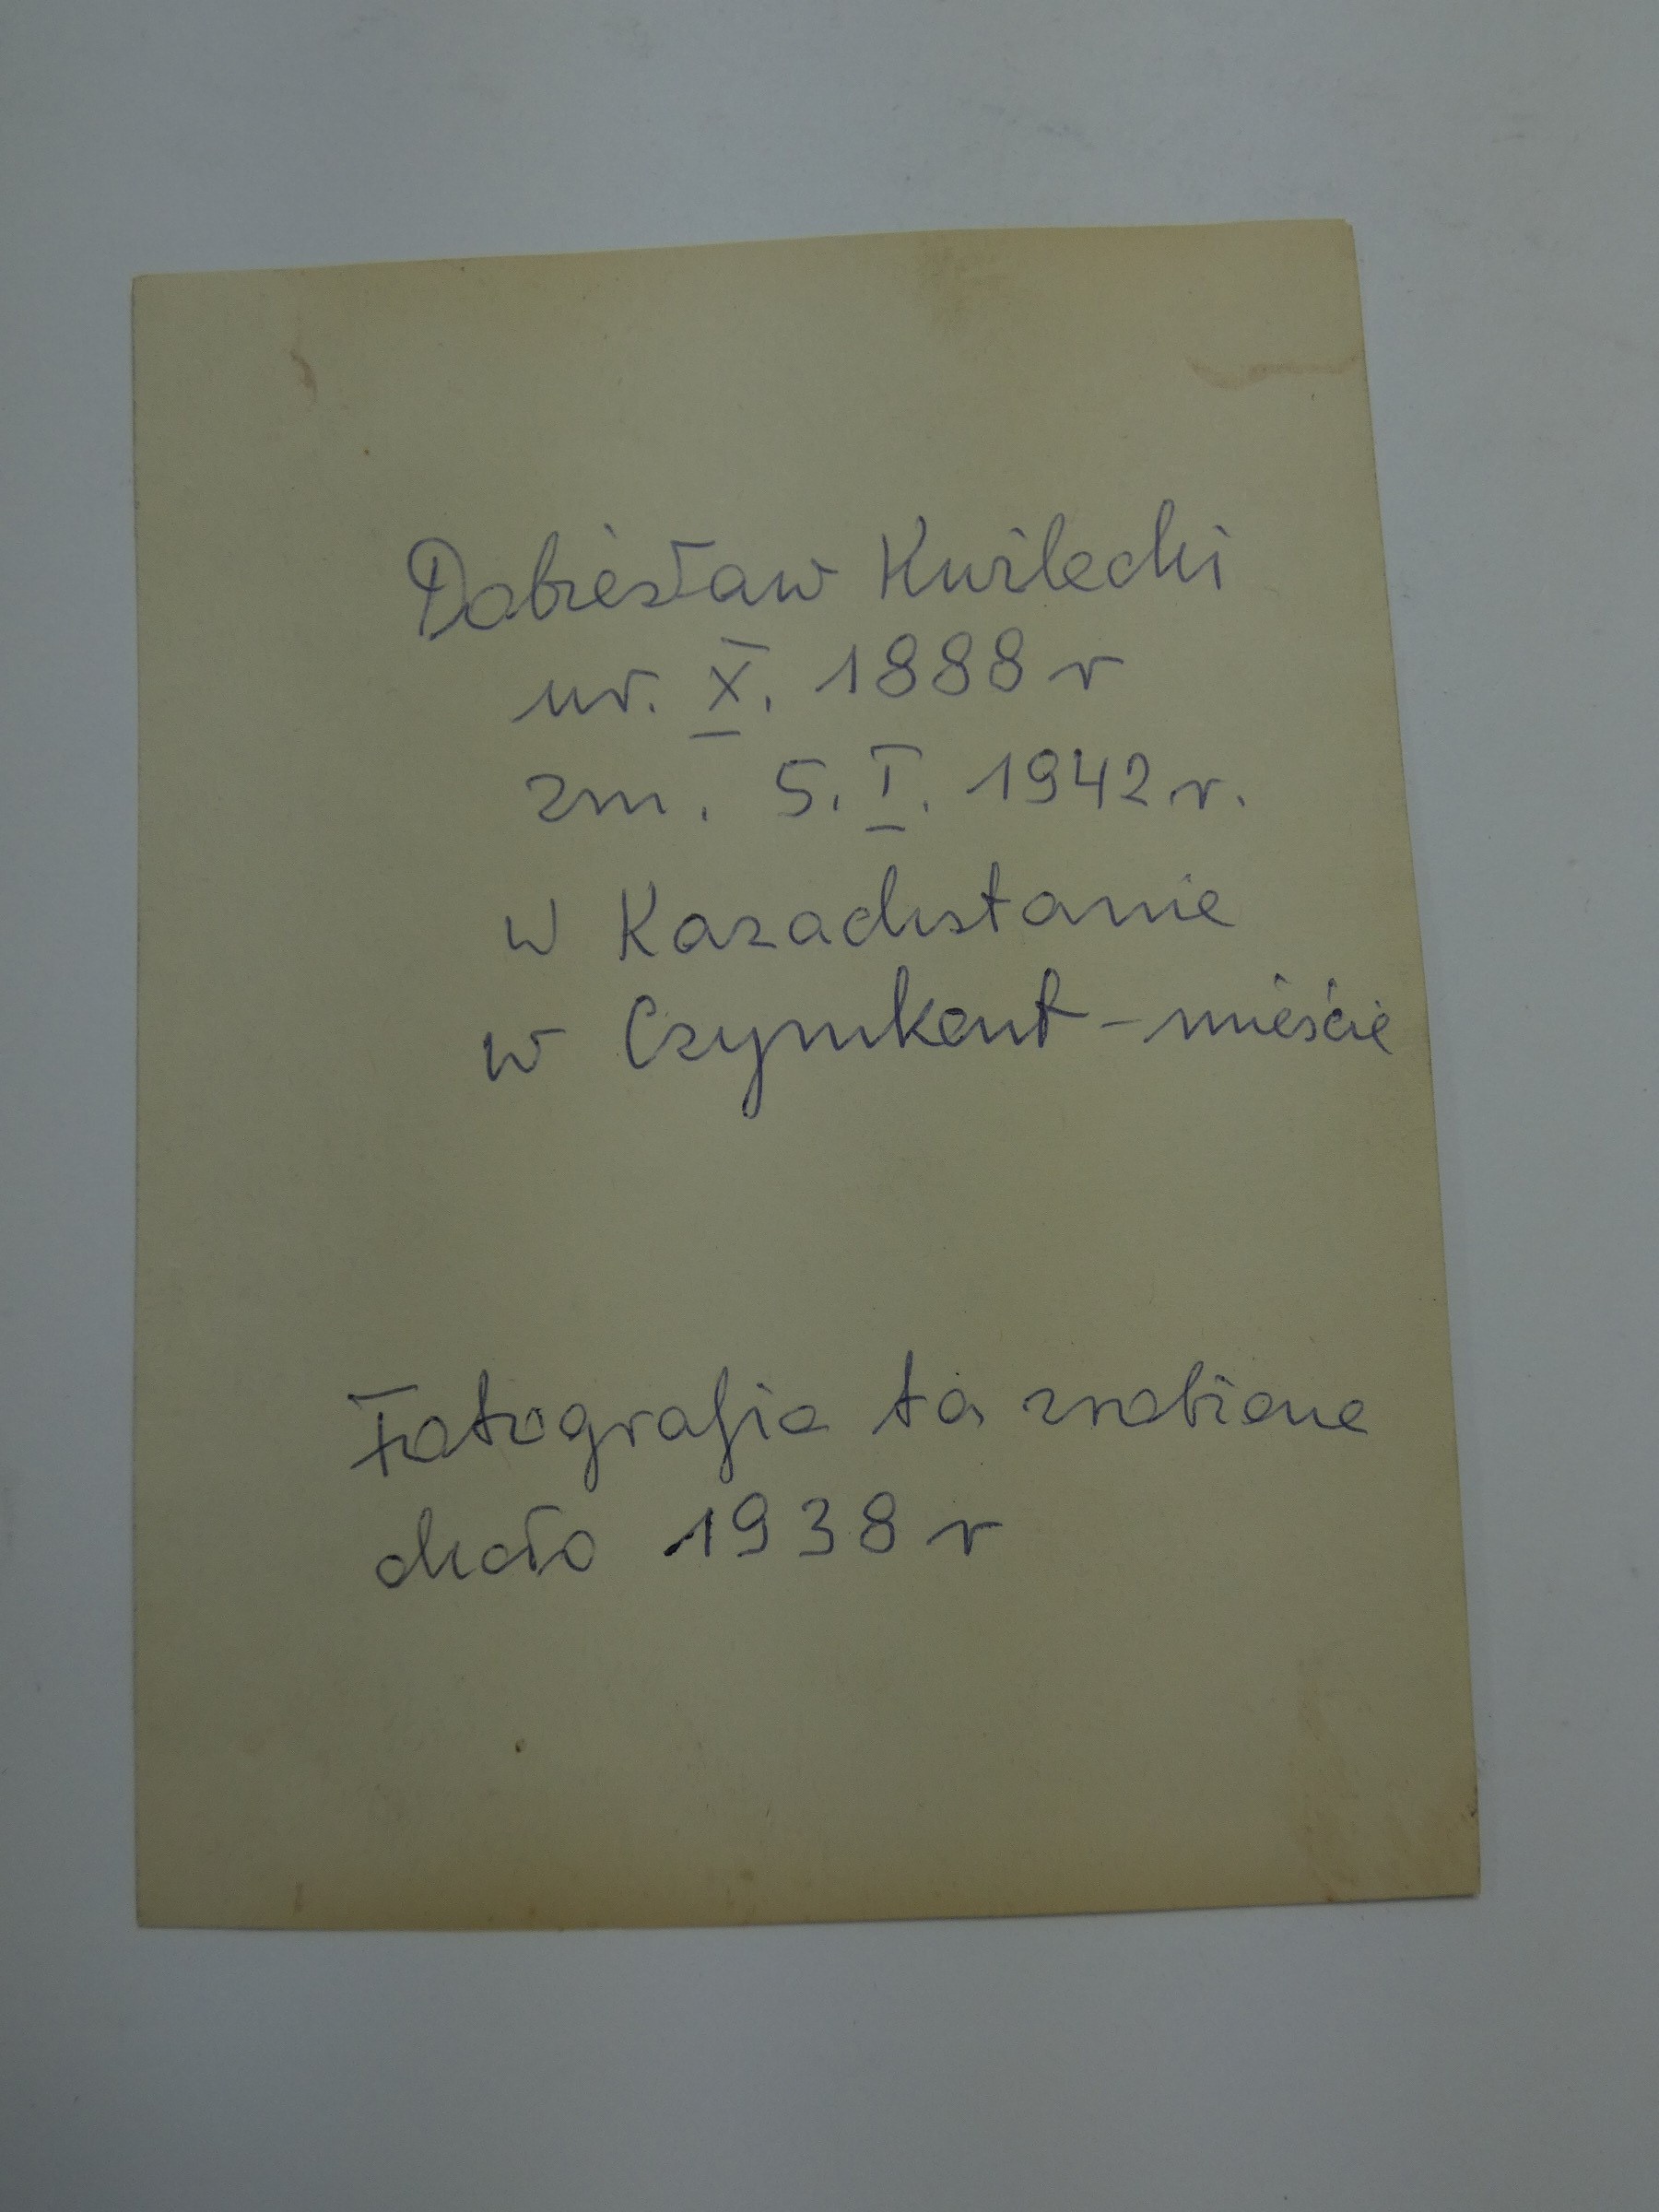 Dobiesław Kwilecki
ur. X. 1888 r
zm. 5. I. 1942 r.
w Kazachstanie
w Czymkent - mieście
Fotografia ta zrobiona
około 1938 r